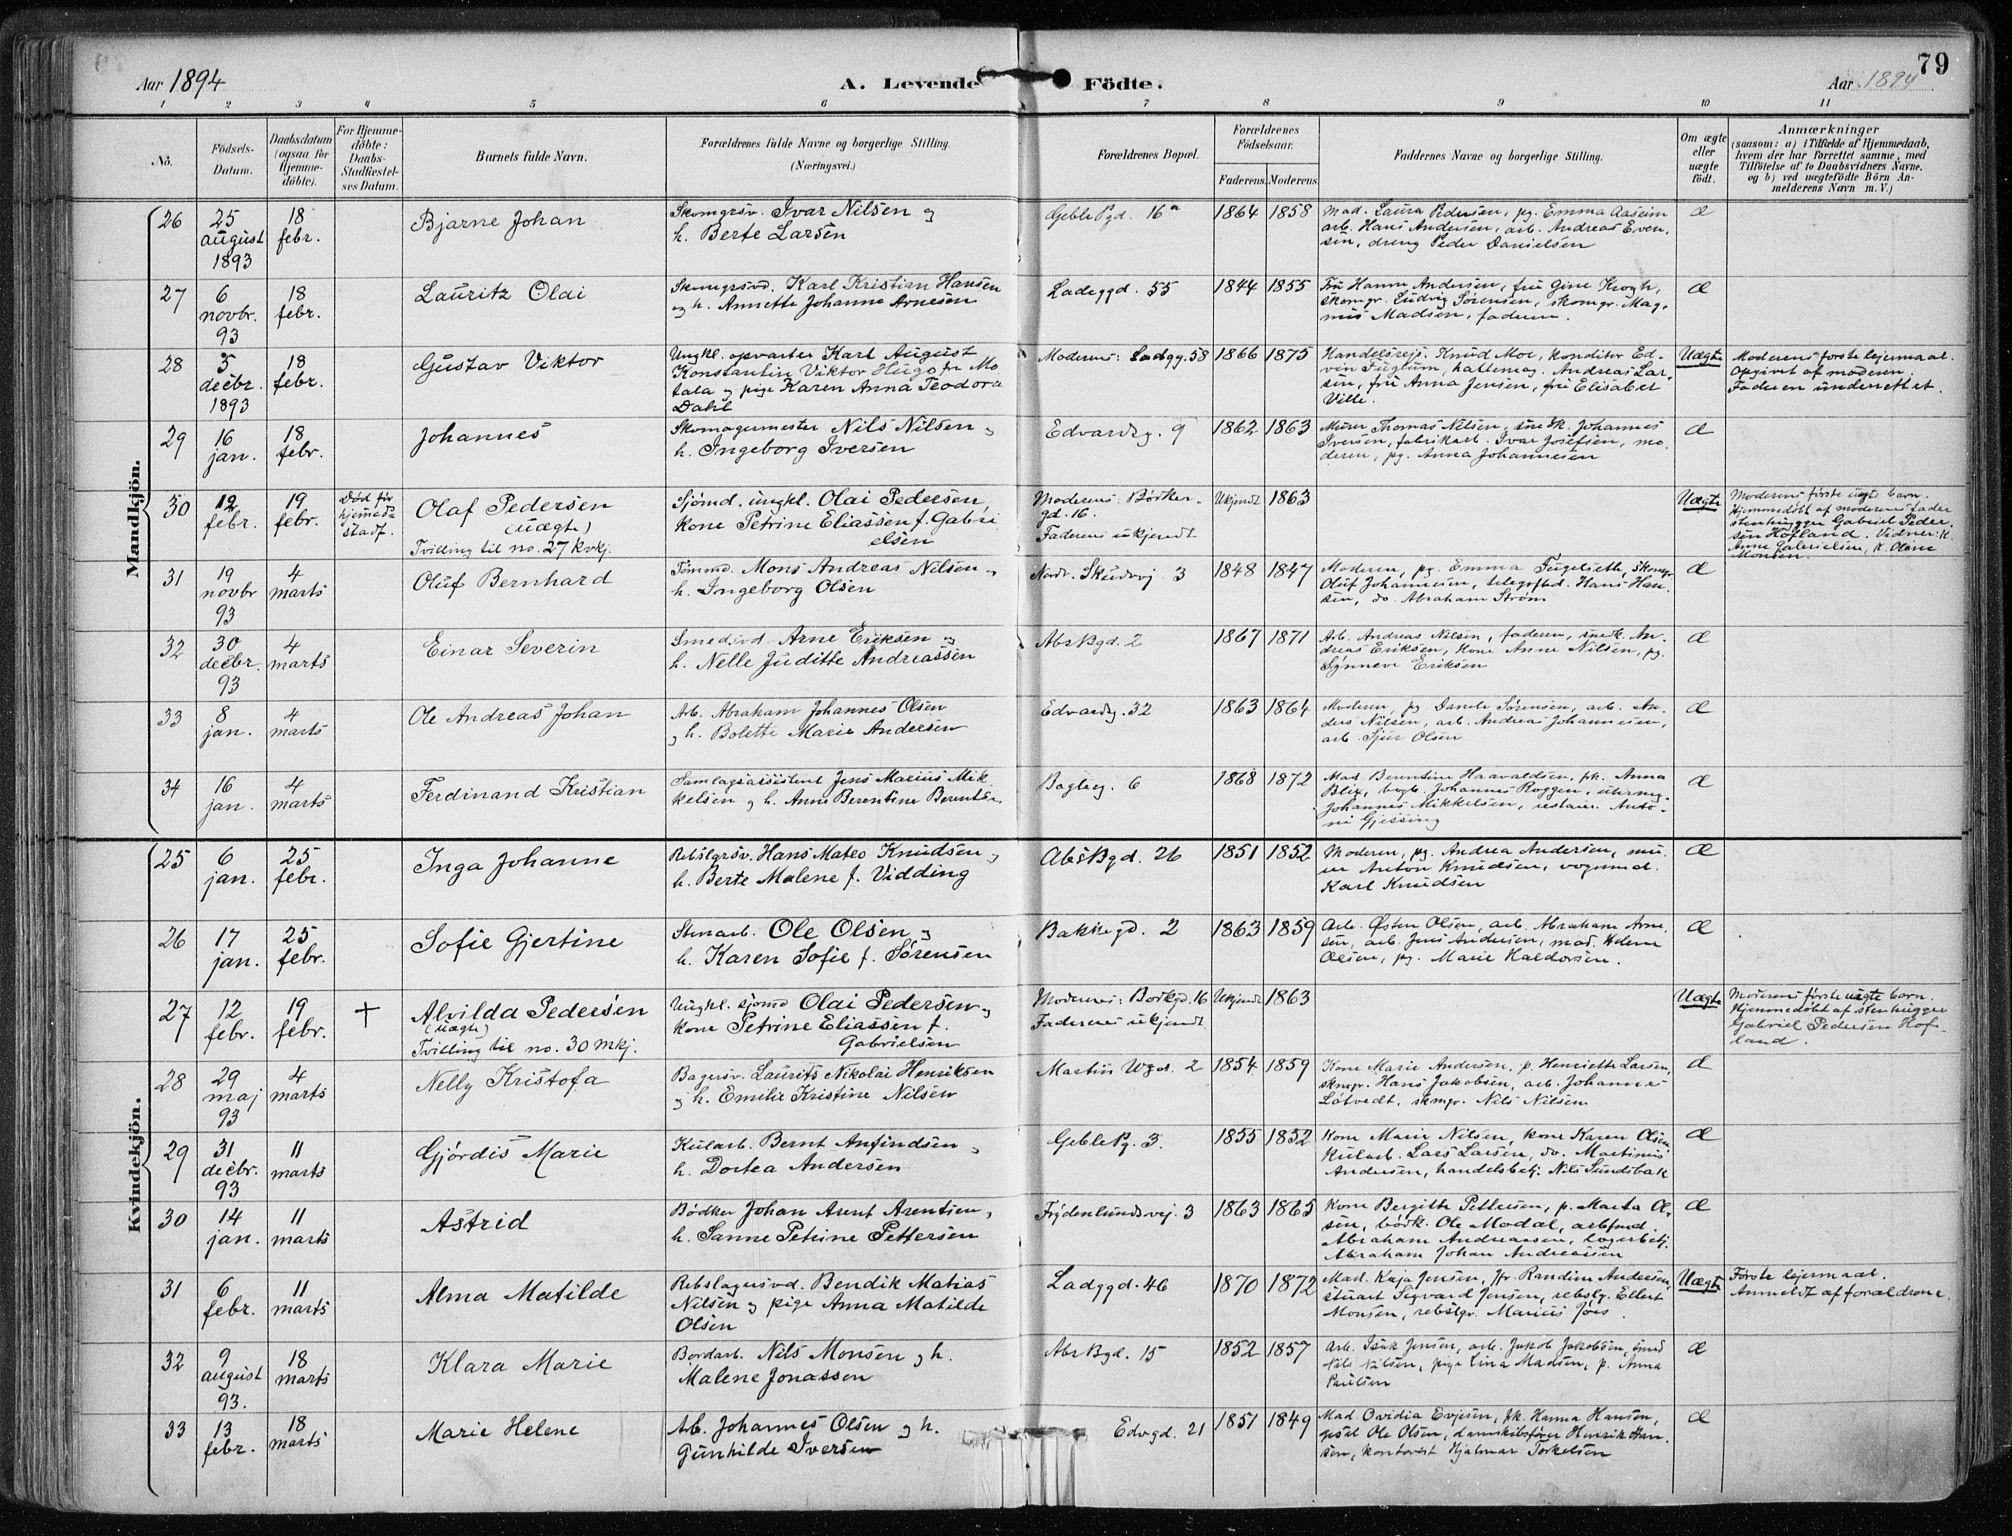 79
Aar 1894
A. Levende Födte.
Aar 1894
1 2 3 4 5 6 7 8 9 10 11
No.
Födsels-Datum.
Daabsdatum (ogsaa for Hjemme-döbte).
For Hjemme-döbte: Daabs-Stadfæstel-ses Datum.
Barnets fulde Navn.
Forældrenes fulde Navne og borgerlige Stilling. (Næringsvei.)
Forældrenes Bopæl.
Forældrenes Födselsaar.
Faderens. Moderens.
Faddernes Navne og borgerlige Stilling.
Om ægte eller uægte födt.
Anmærkninger (saasom: a) i Tilfælde af Hjemmedaab, hvem der har forrettet samme, med Tilföielse af to Daabsvidners Navne. og b) ved uægtefödte Börn An-melderens Navn m. V.)
Mandkjön.
26 25 august 1893 18 febr. Bjarne Johan
Skomgrsv. Ivar Nilsen og
h. Berte Larsen
Geble Pgd. 16a 1864 1858
Mad. Laura Pedersen, pg. Emma Aaseim
arb. Hans Andersen, arb. Andreas Even-
sen, dreng Peder Danielsen
æ
27 6 novbr. 93 18 febr. Lauritz Olai
Skomgrsvd. Karl Kristian Hansen
og h. Annette Johanne Arnesen
Ladeggd. 55 1844 1855
Fru Hanna Andersen, fru Gine Krogh,
skomgr. Ludvig Sørensen, skomgr. Mag-
nus Madsen, faderen.
æ
28 5 decbr. 1893 18 febr. Gustav Viktor
Ungkl. opvarter Karl August
Konstantin Viktor Hugo fr Mo-
tala og pige Karen Anna Teodora
Dahl
Moderens: Ladgg. 58 1866 1875
Handelsrejs. Knud Moe, konditor Ed-
vin Fuglum, hattemag. Andreas Lar-
sen, fru Anna Jensen, fru Elisabet
Ville.
Uægte
Moderens første lejermaal.
Opgivet af moderen.
Faderen underrettet.
29 16 jan. 18 febr. Johannes
Skomagermester Nils Nilsen og
h. Ingeborg Iversen
Edvardsg. 9 1862 1863
Murer Thomas Nilsen, snedk. Johannes
Iversen, fabrikarb. Ivar Josefsen, mo-
deren, pg. Anna Johannesen
æ
30 12 febr. 19 febr. Død før hjemeds stadf. Olaf Pedersen
(uægte)
Tvilling til no. 27 kvkj.
Sjømd. ungkl. Olai Pedersen
kone Petrine Eliassen f. Gabri
elsen
Moderens: Bødker-
gd. 16.
Faderens ukjendt
Ukjendt 1863
Uægte
Moderens første uægte barn.
Hjemmedøbt af moderens fader
stenhugger Gabriel Peder-
sen Hofland. Vidner: k.
Anne Gabrielsen, k. Oline
Monsen.
31 19 novbr 93 4 marts Oluf Bernhard
Tømmd. Mons Andreas Nilsen og
h. Ingeborg Olsen
Nordr. Skudevj. 3 1848 1847
Moderen, pg. Emma Fugelseth, skomgr.
Oluf Johannesen, telegrfbd. Hans Han-
sen, do. Abraham Strøm
æ
32 30 decbr. 93 4 marts Einar Severin
Smedsvd. Arne Eriksen og
h. Nelle Juditte Andreassen
Abs Bgd. 2 1867 1871
Arb. Andreas Nilsen, faderen, snedk. An-
dreas Eriksen, kone Anne Nilsen, pg.
Synneve Eriksen
æ
33 8 jan. 4 marts Ole Andreas Johan
Arb. Abraham Johannes Olsen
og h. Bolette Marie Andersen
Edvardsg. 32 1863 1864
Moderen, pg Dorete Sørensen, arb. An-
ders Nilsen, arb. Andreas Johannesen,
arb. Sjur Olsen
æ
34 16 jan. 4 marts Ferdinand Kristian
Samlagsassistent Jens Marius Mik
kelsen og h. Anne Berentine Berntsen
Bagleg. 6 1868 1872
Mad Berentine Haavaldsen, fk. Anna
Blix, bogb. Johannes Roggen, uhrmag.
Johannes Mikkelsen, restaur. Anto-
ni Gjessing
æ
Kvindekjön.
25 6 jan. 25 febr. Inga Johanne
Rebslgrsv. Hans Mateo Knudsen og
h. Berte Malene f. Vidding
Abs Bgd. 26 1851 1852
Moderen, pg. Andrea Andersen, mu-
rer Anton Knudsen, vognmd.
Karl Knudsen
æ
26 17 jan. 25 febr. Sofie Gjertine
Stenarb. Ole Olsen og
h. Karen Sofie f. Sørensen
Bakkegd. 2 1863 1859
Arb. Østen Olsen, arb. Abraham Arne-
sen, arb. Jens Andersen, mad. Helene
Olsen, pg. Marie Haldorsen.
æ
27 12 febr. 19 febr. † Alvilda Pedersen
(uægte)
Tvilling til no. 30 mkj.
Ungkl. sjømd Olai Pedersen og
kone Petrine Eliassen f.
Gabrielsen
Moderens: Bødkgd. 16
Faderens ukjendt
Ukjendt 1863
Uægte
Moderens første uægte barn.
Hjemmedøbt af stenhugger
Gabriel Pedersen Hof-
land.
28 29 maj 93 4 marts Nelly Kristofa
Bagersv. Laurits Nikolai Henriksen
og h. Emilie Kristine Nilsen
Martin Wgd. 2 1854 1859
Kone Marie Andersen, p. Henriette Larsen,
skmgr. Hans Jakobsen, arb. Johannes
Løtvedt, skmgr. Nils Nilsen
æ
29 31 decbr. 93 11 marts Gjørdis Marie
Kularb. Bernt Anfindsen og
h. Dortea Andersen
Geble Pg. 3. 1855 1852
Kone Marie Nilsen, kone Karen Olsen
kularb. Lars Larsen, do. Martinus
Andersen, handelsbetj. Nils Sundsbak
æ
30 14 jan. 11 marts Astrid
Bødker Johan Arent Arentsen og
h. Sanne Petrine Pettersen
Frydenlundsvej. 3 1863 1865
Kone Bergitte Pettersen, p. Marta Ol-
sen, bødk. Ole Modal, arbfmd.
Abraham Andreassen, lagerbetj.
Abraham Johan Andreassen
æ
31 6 febr. 11 marts Alma Matilde
Rebslagersvd. Bendik Matias
Nilsen og pige Anna Matilde
Olsen
Ladggd. 46 1870 1872
Mad. Kaja Jensen, fr. Randine Andersen,
stuart Sigvard Jensen, rebslg. Ellert
Monsen, rebslgr. Marius Joes
Uægte
Første lejermaal.
Anmeldt af forældrene.
32 9 august 93. 18 marts Klara Marie
Bordarb. Nils Monsen og h.
Malene Jonassen
Abs Bgd. 15 1852 1857
Arb. Isak Jensen, arb. Jakob Jakobsen, smed
Nils Nilsen, pige Lina Madsen, p. Anna
Paulsen
æ
33 13 febr. 18 marts Marie Helene
Arb. Johannes Olsen og h.
Gunhilde Iversen
Edvgd. 21 1851 1849
Mad Ovidia Evjesen, fk. Hanna Hansen,
gestel Ole Olsen, dampskibsfører Henrik Han-
sen, kontorist Hjalmar Torkelsen
æ